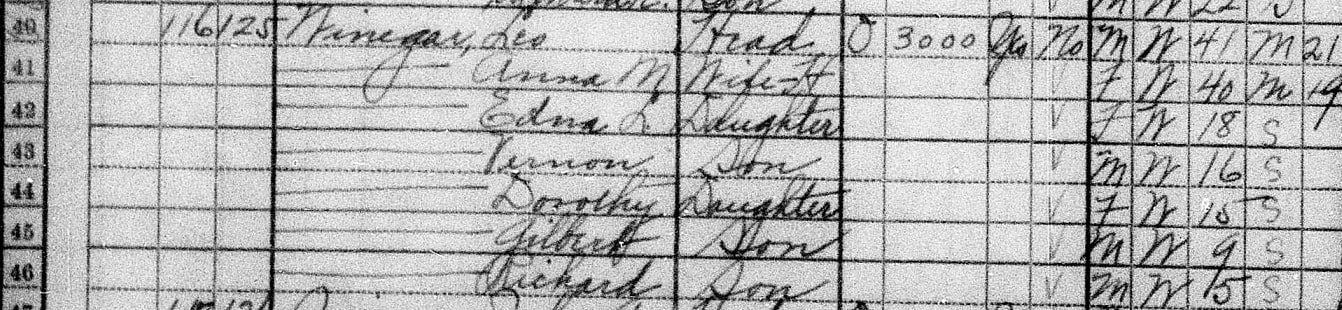 Son M W 22 S
40 116 125 Winegar, Leo Head O 3000 Yes No M W 41 M 21
41 Anna M Wife-H F W 40 M 19
42 Edna L Daughter F W 18 S
43 Vernon Son M W 16 S
44 Dorothy Daughter F W 15 S
45 Gilbert Son M W 9 S
46 Richard Son M W 5 S